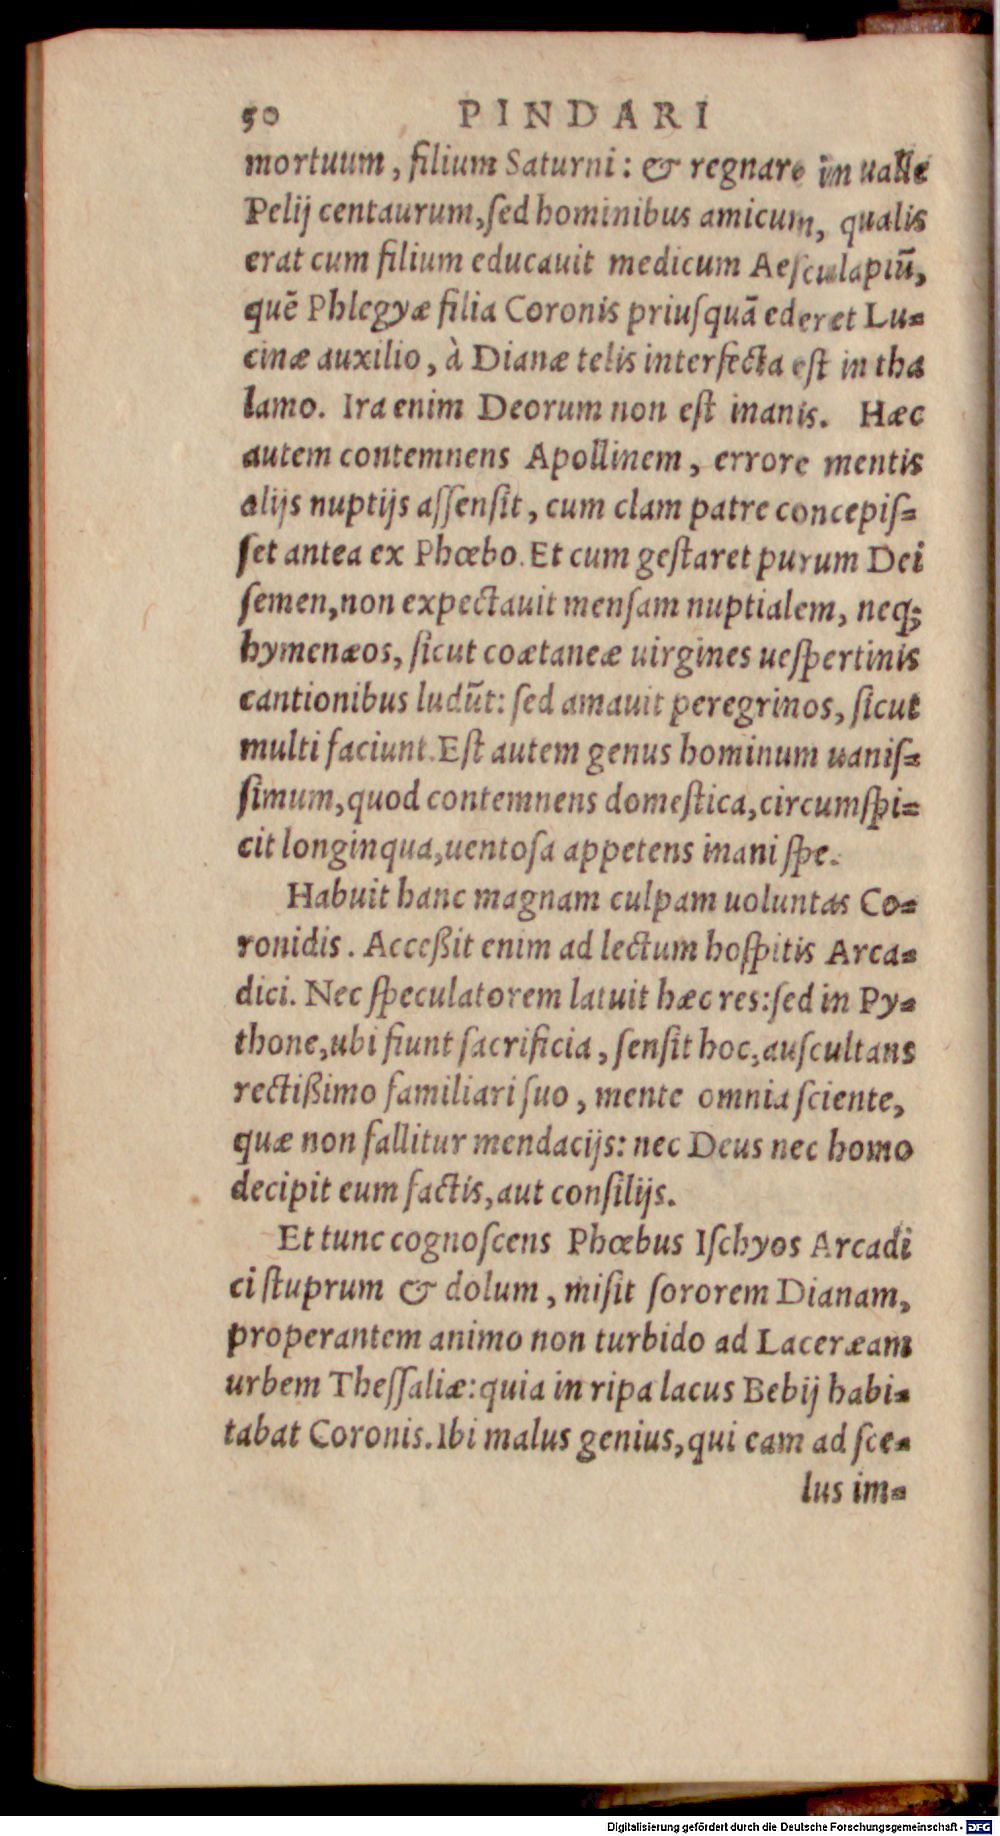 50 PINDARI
mortuum, filium Saturni: & regnare in ualle
Pelij centaurum, ſed hominibus amicum, qualis
erat cum filium educauit medicum Aeſculapiũ,
quẽ Phlegyæ filia Coronis priuſquã ederet Lu-
cinæ auxilio, à Dianæ telis interfecta eſt in tha
lamo. Ira enim Deorum non eſt inanis. Hæc
autem contemnens Apollinem, errore mentis
alijs nuptijs aſſenſit, cum clam patre concepiſ-
ſet antea ex Phœbo. Et cum geſtaret purum Dei
ſemen, non expectauit menſam nuptialem, neq;
hymenæos, ſicut coætaneæ uirgines ueſpertinis
cantionibus ludũt: ſed amauit peregrinos, ſicut
multi faciunt. Eſt autem genus hominum uaniſ-
ſimum, quod contemnens domeſtica, circumſpi-
cit longinqua, uentoſa appetens inani ſpe.
Habuit hanc magnam culpam uoluntas Co-
ronidis. Acceßit enim ad lectum hoſpitis Arca-
dici. Nec ſpeculatorem latuit hæc res: ſed in Py-
thone, ubi fiunt ſacrificia, ſenſit hoc, auſcultans
rectißimo familiari ſuo, mente omnia ſciente,
quæ non fallitur mendacijs: nec Deus nec homo
decipit eum factis, aut conſilijs.
Et tunc cognoſcens Phœbus Iſchyos Arcadi
ci ſtuprum & dolum, miſit ſororem Dianam,
properantem animo non turbido ad Laceræam
urbem Theſſaliæ: quia in ripa lacus Bebij habi-
tabat Coronis. Ibi malus genius, qui eam ad ſce-
lus im-
Digitalisierung gefördert durch die Deutsche Forschungsgemeinschaft - DFG